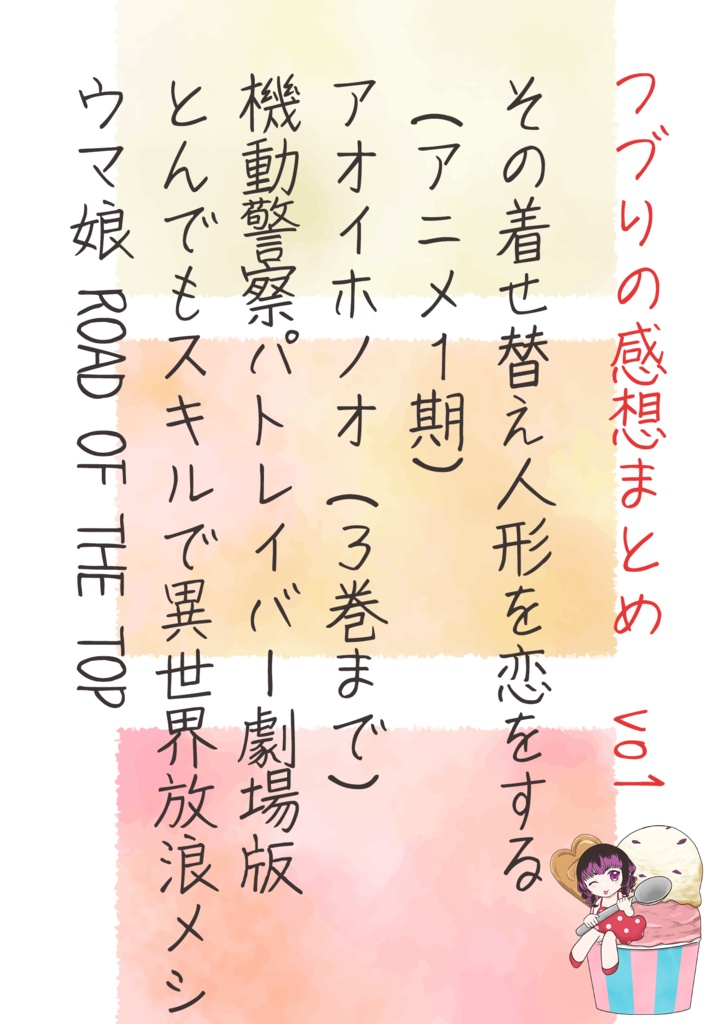 つづりの感想まとめ vo1
その着せ替え人形を恋をする
(アニメ1期)
アオイホノオ (3巻まで)
機動警察パトレイバー劇場版
とんでもスキルで異世界放浪メシ
ウマ娘 ROAD OF THE TOP